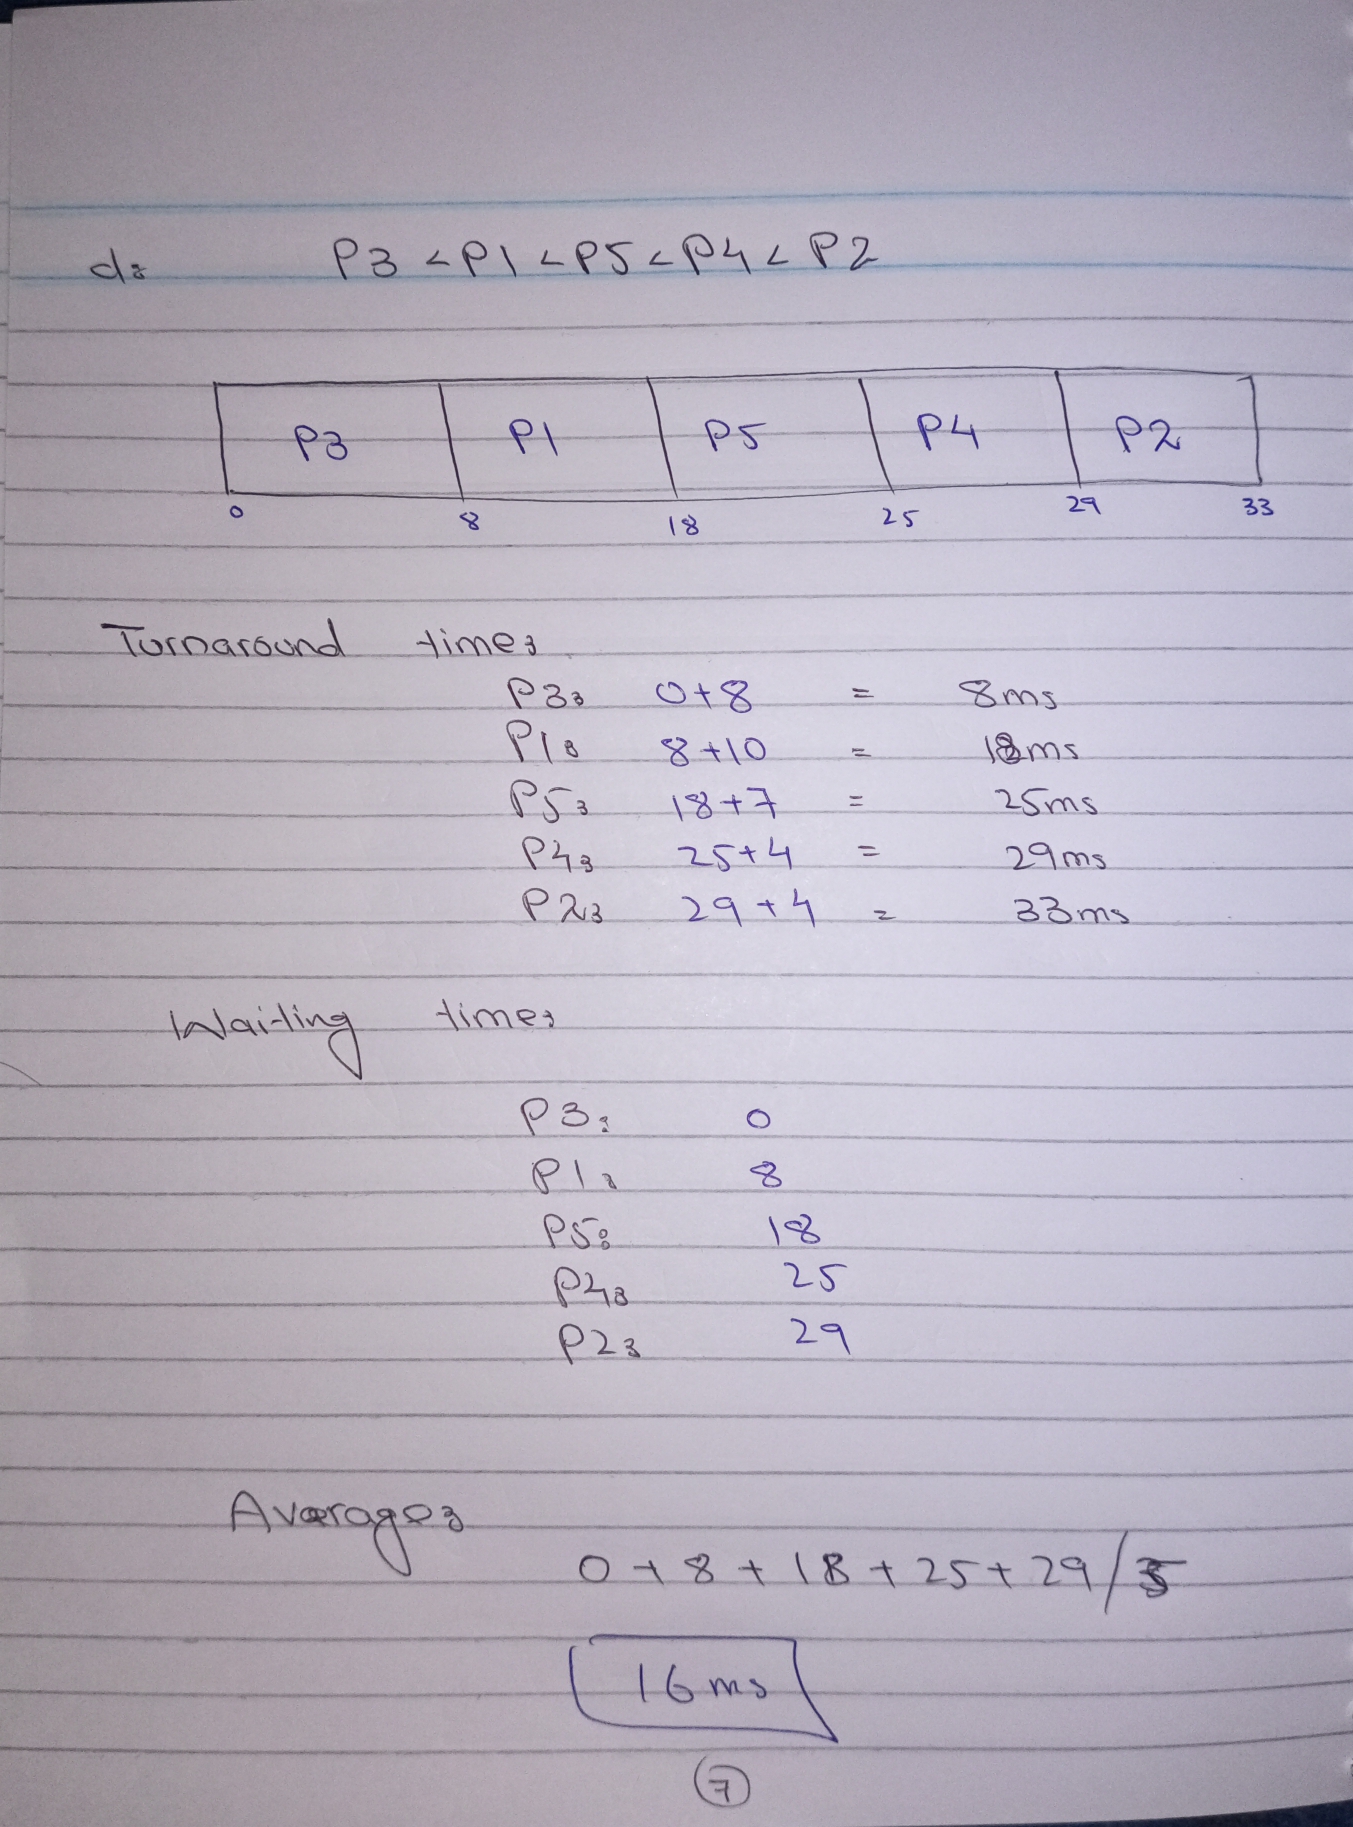 d: P3 < P1 < P5 < P4 < P2
P3 P1 P5 P4 P2
0 8 18 25 29 33
Turnaround time:
P3: 0+8 = 8ms
P1: 8+10 = 18ms
P5: 18+7 = 25ms
P4: 25+4 = 29ms
P2: 29+4 = 33ms
Waiting time:
P3: 0
P1: 8
P5: 18
P4: 25
P2: 29
Average:
0+8+18+25+29/5
16ms
7